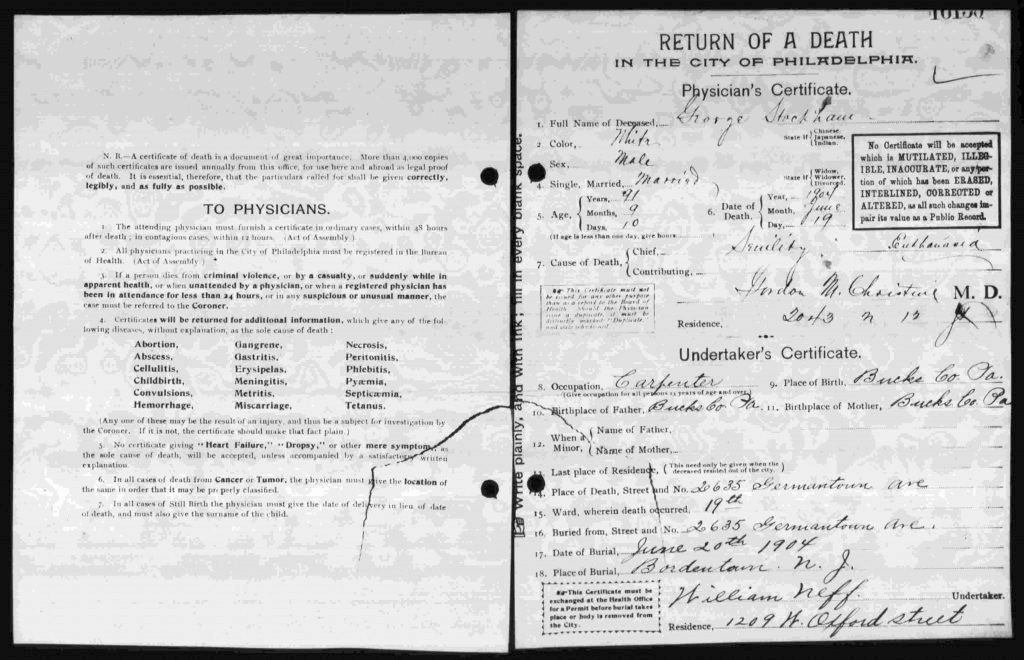 N. B.—A certificate of death is a document of great importance. More than 4,000 copies
of such certificates are issued annually from this office, for use here and abroad as legal proof
of death. It is essential, therefore, that the particulars called for shall be given correctly,
legibly, and as fully as possible.
TO PHYSICIANS.
1. The attending physician must furnish a certificate in ordinary cases, within 48 hours
after death; in contagious cases, within 12 hours. (Act of Assembly.)
2. All physicians practicing in the City of Philadelphia must be registered in the Bureau
of Health. (Act of Assembly.)
3. If a person dies from criminal violence, or by a casualty, or suddenly while in
apparent health, or when unattended by a physician, or when a registered physician has
been in attendance for less than 24 hours, or in any suspicious or unusual manner, the
case must be referred to the Coroner.
4. Certificates will be returned for additional information, which give any of the fol-
lowing diseases, without explanation, as the sole cause of death:
Abortion, Gangrene, Necrosis,
Abscess, Gastritis, Peritonitis,
Cellulitis, Erysipelas, Phlebitis,
Childbirth, Meningitis, Pyæmia,
Convulsions, Metritis, Septicæmia,
Hemorrhage, Miscarriage, Tetanus.
(Any one of these may be the result of an injury, and thus be a subject for investigation by
the Coroner. If it is not, the certificate should make that fact plain.)
5. No certificate giving "Heart Failure," "Dropsy," or other mere symptom, as
the sole cause of death, will be accepted, unless accompanied by a satisfactory written
explanation.
6. In all cases of death from Cancer or Tumor, the physician must give the location of
the same in order that it may be properly classified.
7. In all cases of Still Birth the physician must give the date of delivery in lieu of date
of death, and must also give the surname of the child.
Write plainly, and with ink; fill in every blank space.
RETURN OF A DEATH
IN THE CITY OF PHILADELPHIA.
Physician's Certificate.
1. Full Name of Deceased, George Stockham
2. Color, White State if Chinese, Japanese, Indian.
Sex, Male
4. Single, Married, Married State if Widow, Widower, Divorced.
No Certificate will be accepted
which is MUTILATED, ILLEG-
IBLE, INACCURATE, or any por-
tion of which has been ERASED,
INTERLINED, CORRECTED or
ALTERED, as all such changes im-
pair its value as a Public Record.
5. Age, Years, 71
Months, 9
Days, 10
(If age is less than one day, give hours.
6. Date of Death, Year, 1904
Month, June
Day, 19
7. Cause of Death, Chief, Senility
Contributing,
This Certificate must not
be issued for any other purpose
than as a report to the Board of
Health. Should the Physician
issue a duplicate, it must be
distinctly marked "Duplicate,"
Gordon M. Christine M. D.
Residence, 2043 N 12
Undertaker's Certificate.
8. Occupation, Carpenter 9. Place of Birth, Bucks Co Pa.
(Give occupation for all persons 15 years of age and over.)
10. Birthplace of Father, Bucks Co Pa. 11. Birthplace of Mother, Bucks Co. Pa
12. When a Minor, Name of Father,
Name of Mother,
13. Last place of Residence, (This need only be given when the deceased resided out of the city.)
14. Place of Death, Street and No. 2635 Germantown Ave
15. Ward, wherein death occurred, 19th
16. Buried from, Street and No. 2635 Germantown Ave.
17. Date of Burial, June 20th 1904
18. Place of Burial, Bordentown. N. J.
This Certificate must be
exchanged at the Health Office
for a Permit before burial takes
place or body is removed from
the City.
William Neff. Undertaker.
Residence, 1209 W. Oxford street